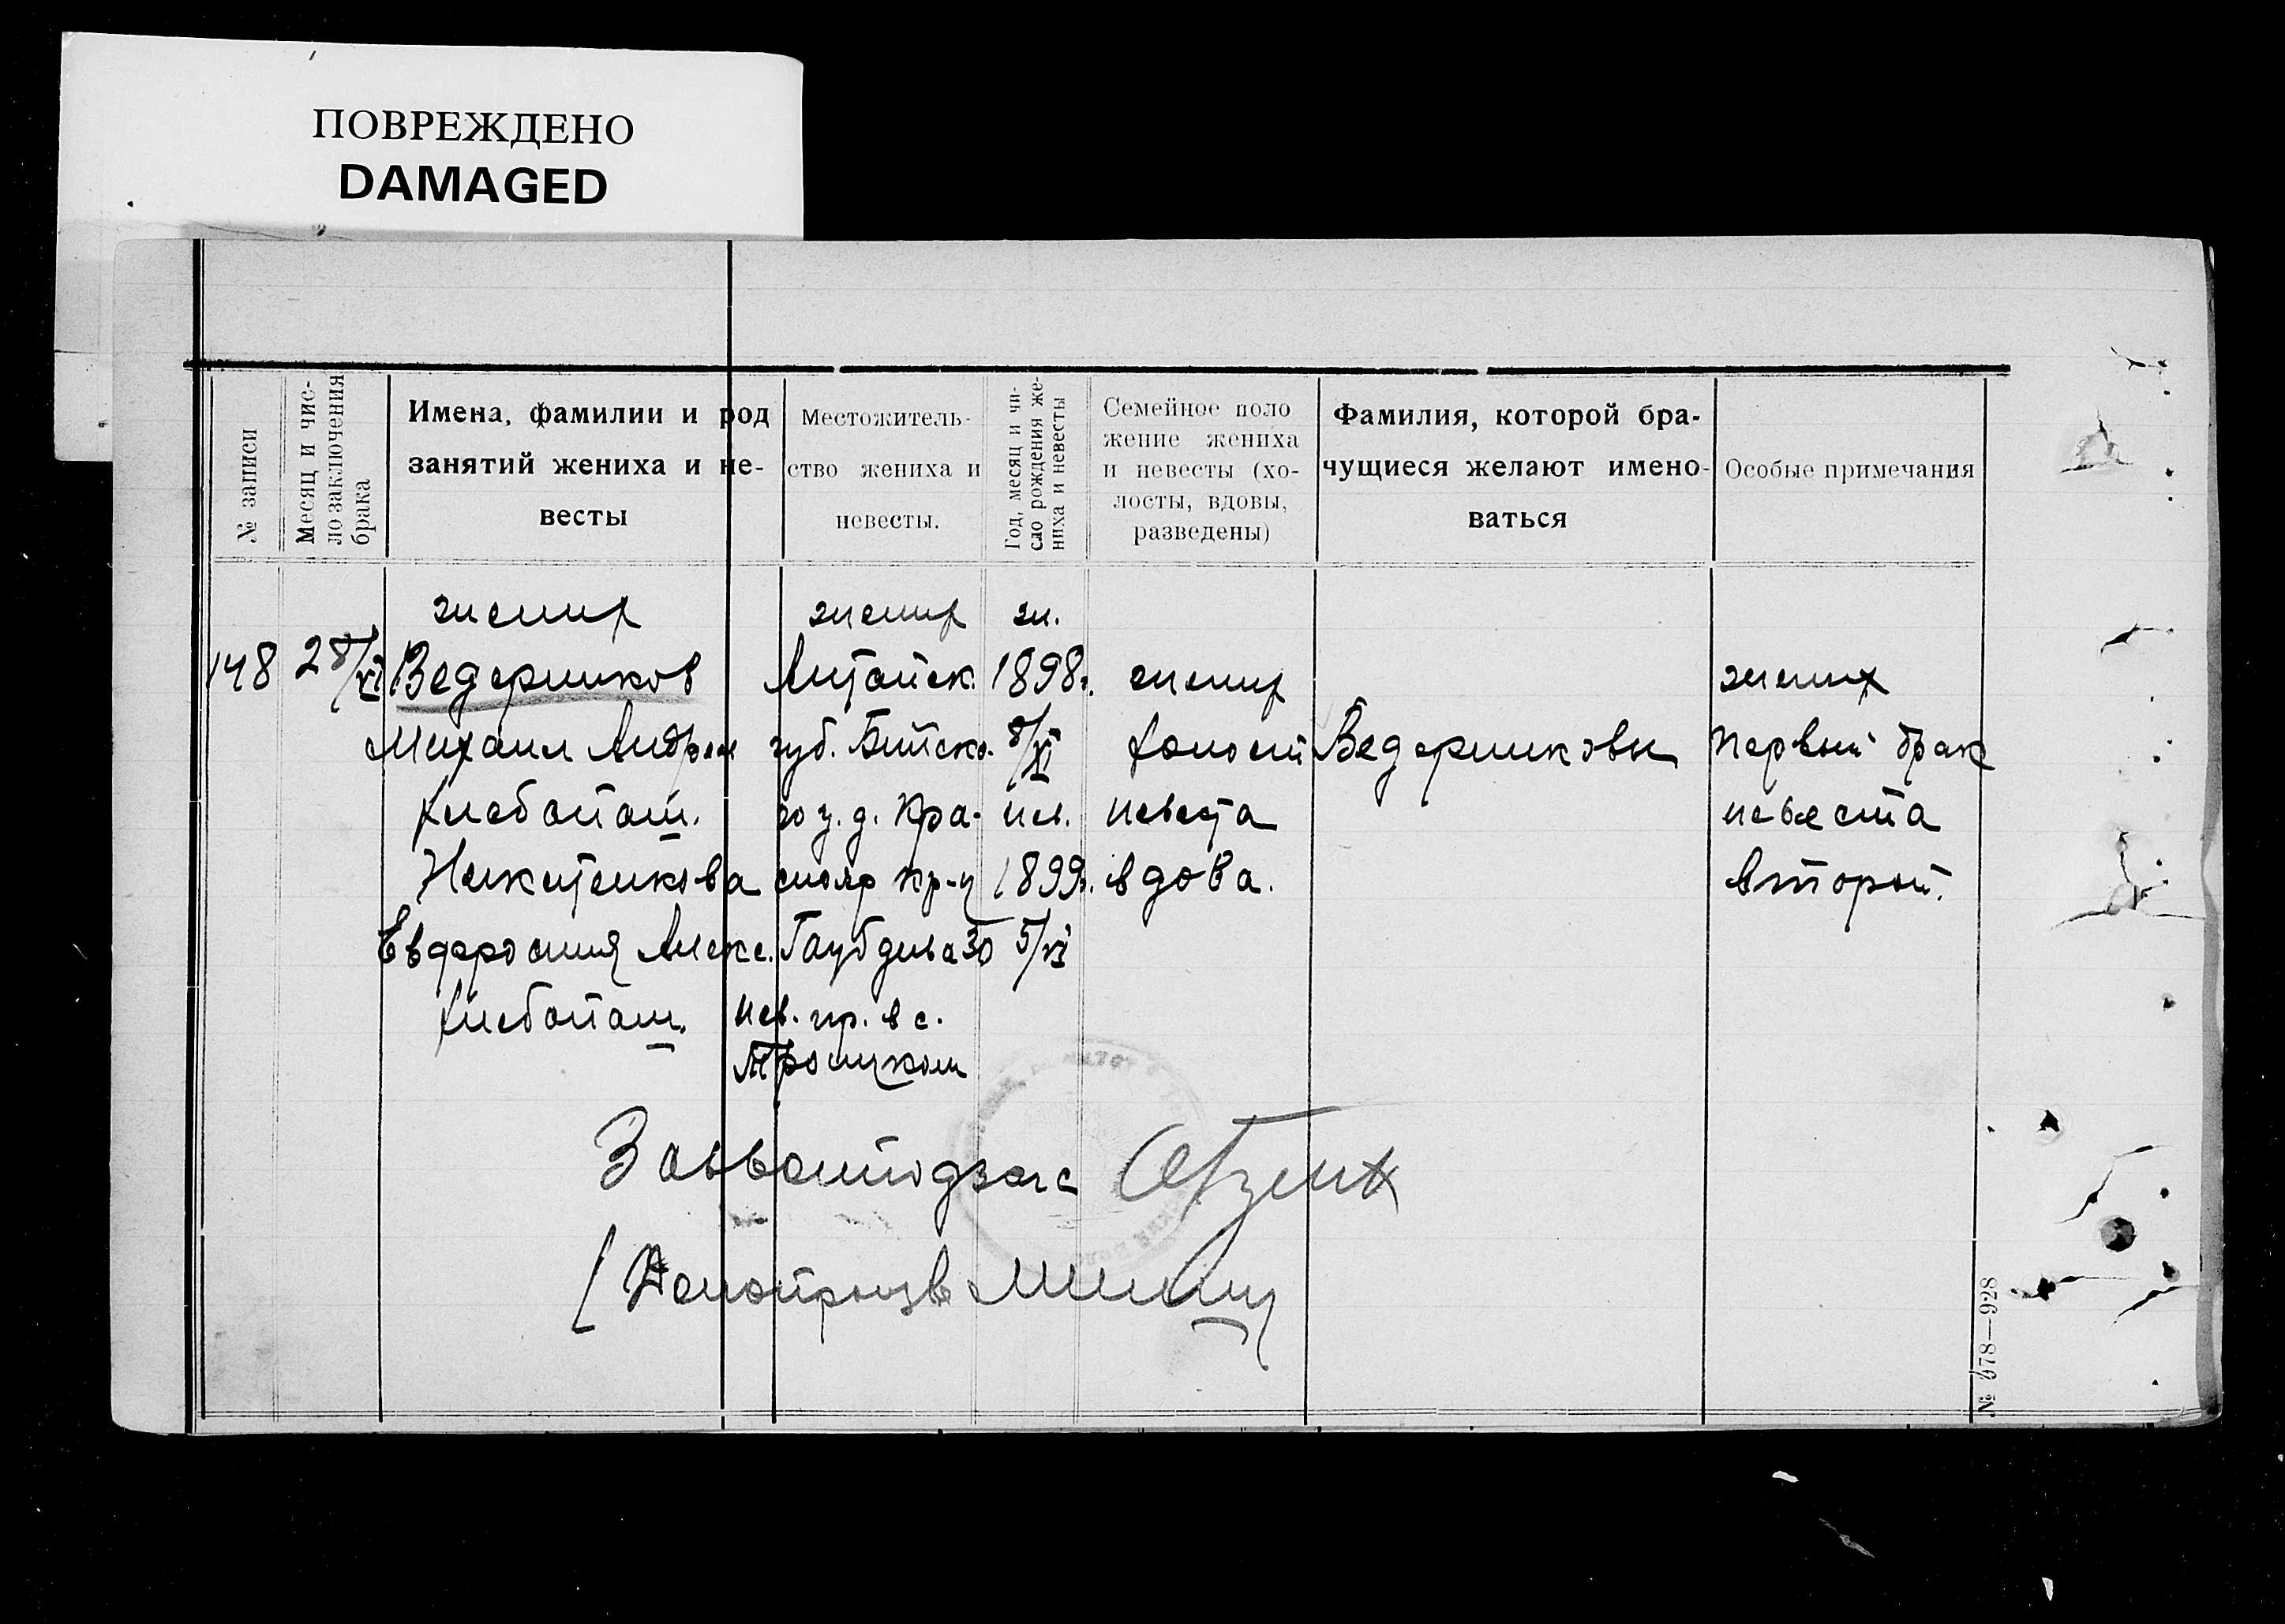 ПОВРЕЖДЕНО
DAMAGED
№ записи
Месяц и чис-
ло заключения
брака
Имена, фамилии и род
занятий жениха и не-
весты
Местожитель-
ство жениха и
невесты.
Год, месяц и чи-
сло рождения же-
ниха и невесты
Семейное поло
жение жениха
и невесты (хо-
лосты, вдовы,
разведены)
Фамилия, которой бра-
чущиеся желают имено-
ваться
Особые примечания
148
28/XI
жених
Ведерников
Михаил Андреев
хлебопаш.
Никитенкова
Евдросиния Алекс.
хлебопаш.
жених
Алтайск.
губ. Бийско-
го у. д. Кра-
снояр кр-ц
нев. пр. в с.
Троицком
ж.
1898г.
8/XI
нев.
1899г.
5/VI
жених
холост
невеста
вдова.
Ведерниковы
жених
первый брак
невеста
второй.
Заввolподзагс
№ 978—928